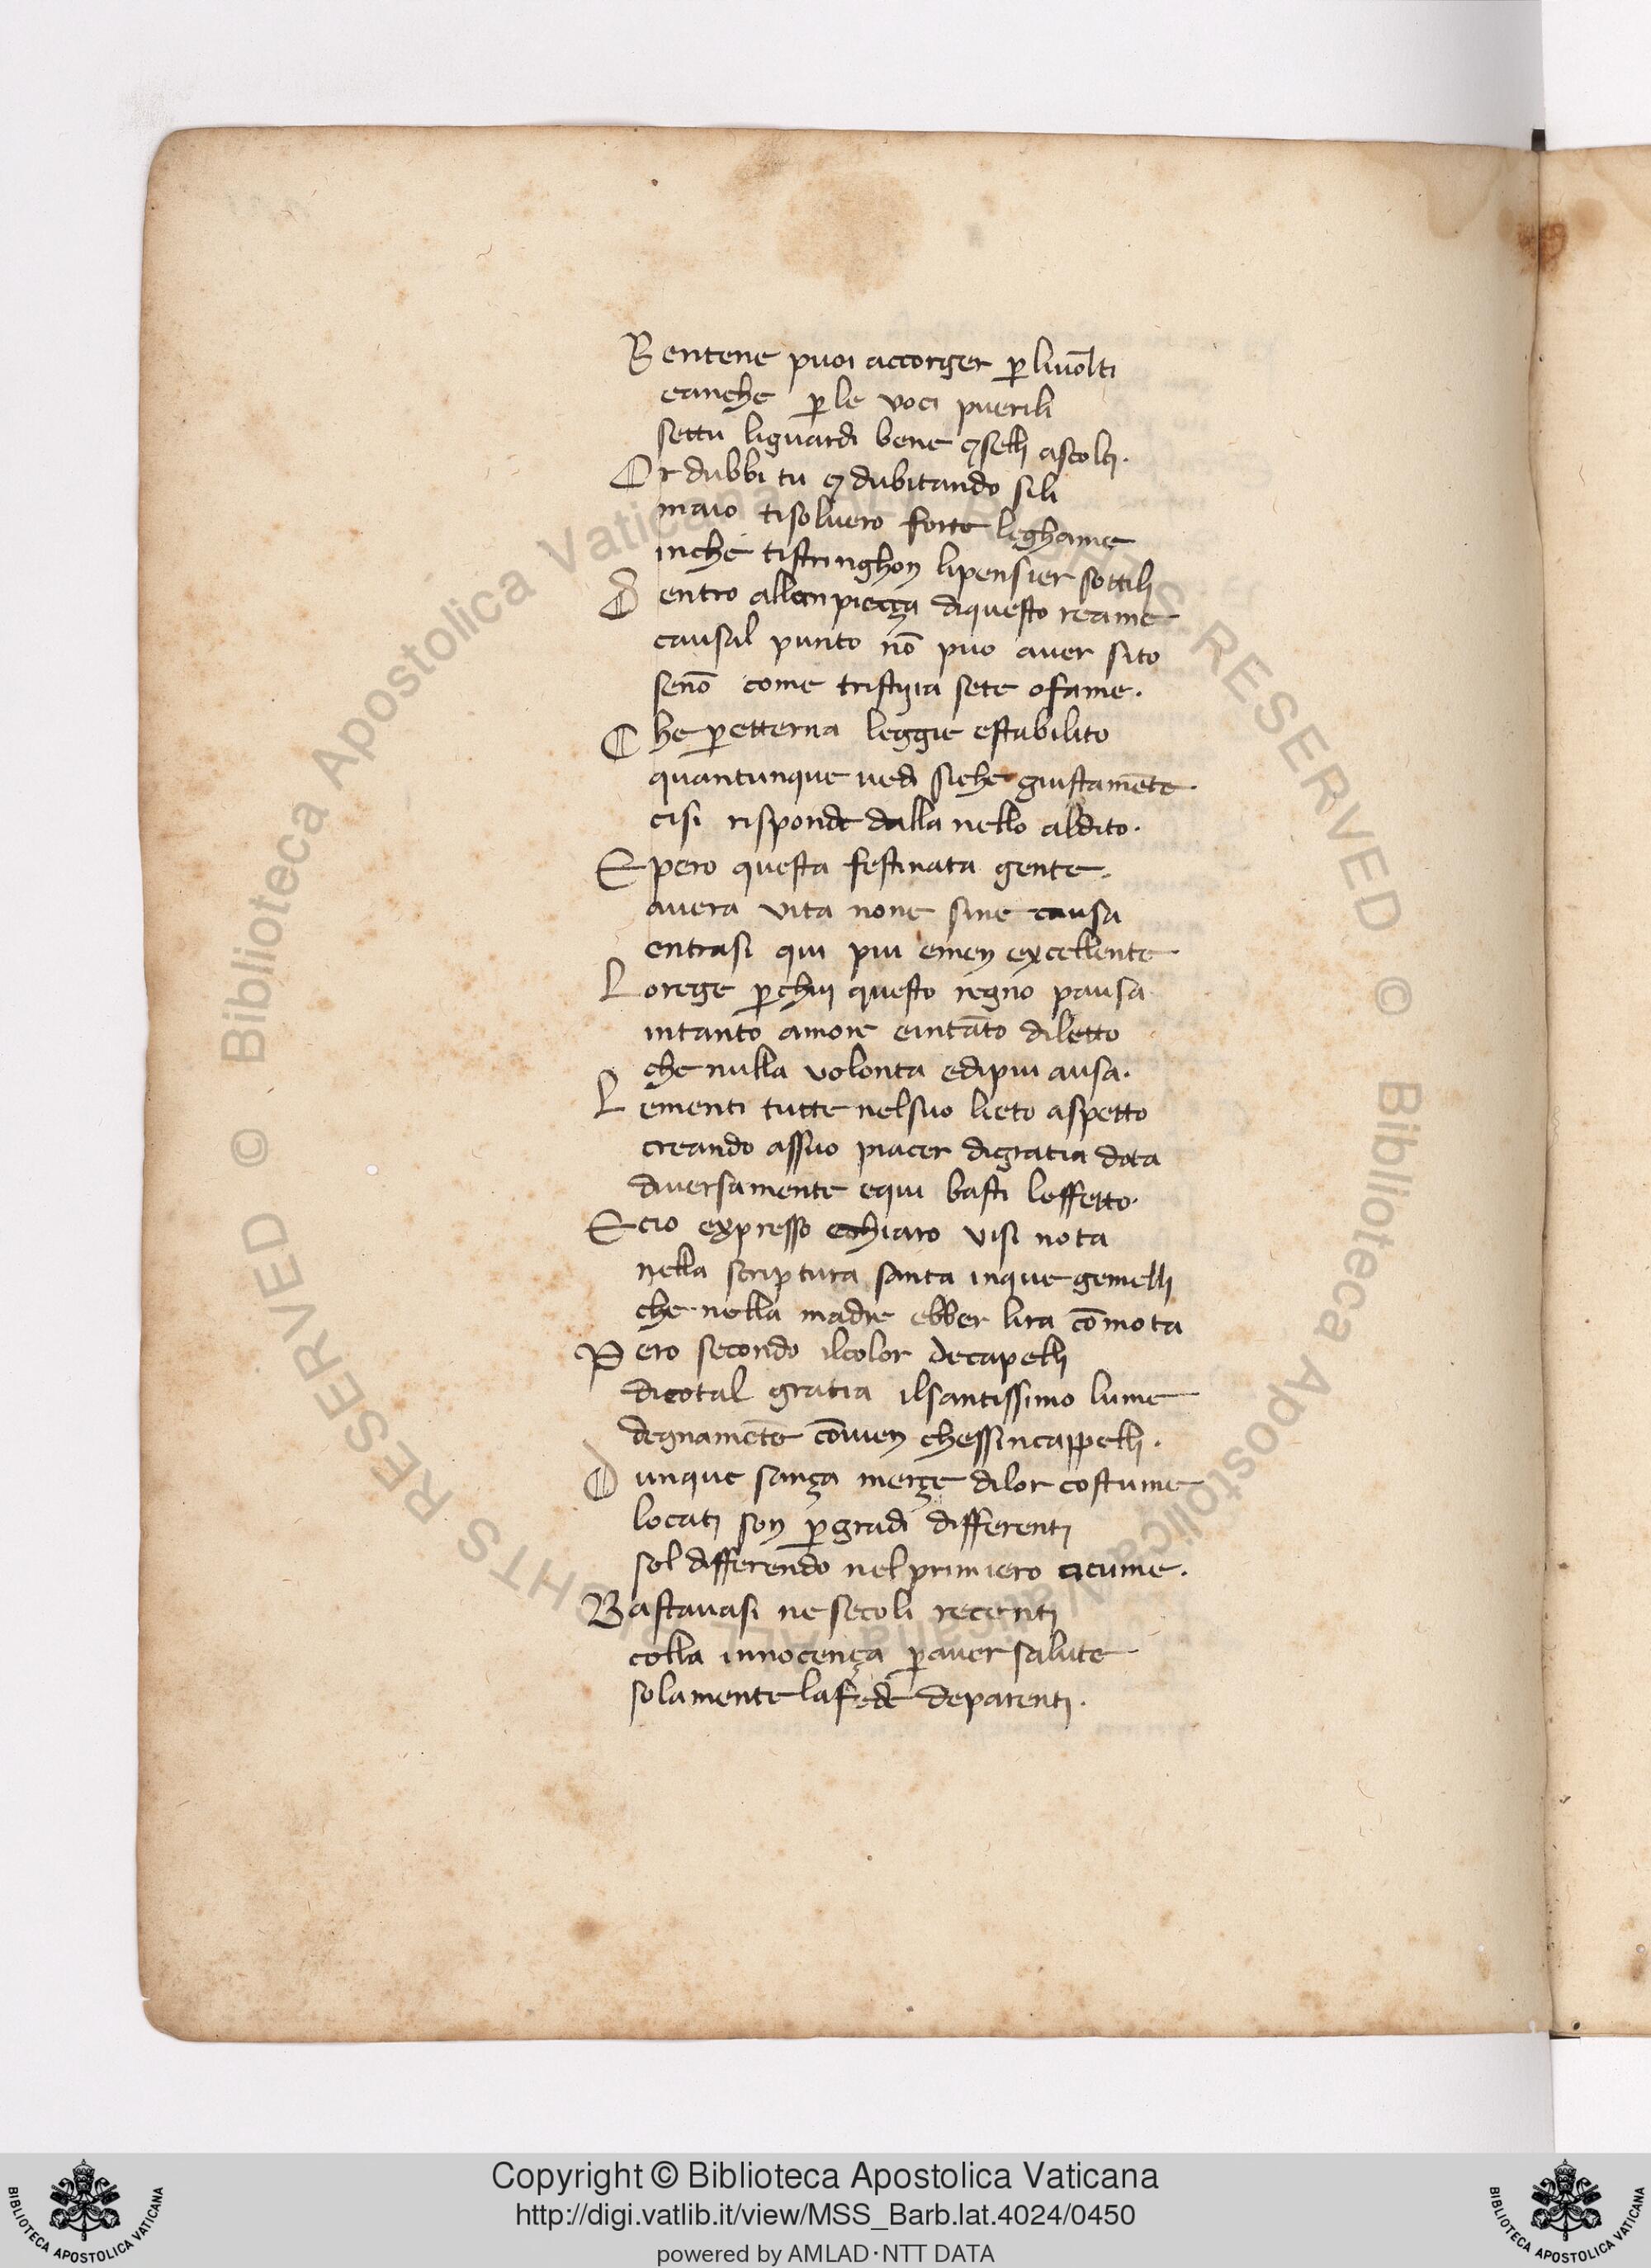 Bentene puoi accorger ꝑ liuolti
eanche ꝑ le voci puerili
settu liguardi bene ⁊ selli ascolti.
Or dubbi tu ⁊ dubitando sili
maio tisoluero forte leghame
inche tistringhon lipensier sottili
Dentro allanpieçça diquesto reame
causal punto nō puo auer sito
senō come tristiçia sete ofame.
Che ꝑ etterna leggie estabilito
quantunque uedi siche giustamēte
cisi risponde dalla nello aldito.
Epero questa festinata gente.
auera vita none sine causa
entrasi qui piu emen excellente
Lorege ꝑ chui questo regno pausa
intanto amore eintāto diletto
che nulla volonta edipiu ausa.
Lementi tutte nelsuo lieto aspetto
creando assuo piacer digratia dota
diuersamente equi basti leffetto.
Ecio expresso echiaro visi nota
nella scriptura santa inque gemelli
che nella madre ebber lira cōmota
Pero secondo ilcolor decapelli
dicotal gratia ilsantissimo lume
degnamēte cōuien chessincappelli.
Dunque sança merçe dilor costume
locati son ꝑ gradi differenti
sol differendo nelprimiero acume.
Bastauasi nesecoli recenti
colla innocença ꝑ auer salute
solamente lafede deparenti.
© Biblioteca Apostolica Vaticana ALL RIGHTS RESERVED © Biblioteca Apostolica Vaticana ALL RIGHTS RESERVED
Copyright © Biblioteca Apostolica Vaticana
http://digi.vatlib.it/view/MSS_Barb.lat.4024/0450
powered by AMLAD·NTT DATA
BIBLIOTECA APOSTOLICA VATICANA
BIBLIOTECA APOSTOLICA VATICANA